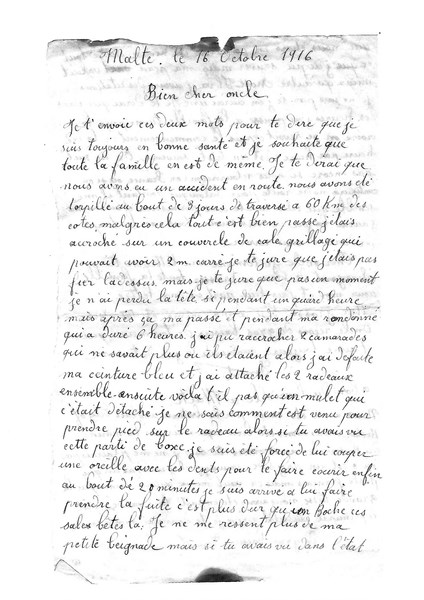 Malte. le 16 Octobre 1916
Bien cher oncle.
Je t'envoie ces deux mots pour te dire que je
suis toujours en bonne santé et je souhaite que
toute la famille en est de même. Je te dirai que
nous avons eu un accident en route nous avons été
torpillé au bout de 3 jours de traversé a 60 Km des
cotes, malgréo cela tout c'est bien passé j'étais
accroché sur un couvercle de cale grillagé qui
pouvait avoir 2 m. carré je te jure que j'étais pas
fier la dessus mais je te jure que pas un moment
je n'ai perdu la tête si pendant un quare heure
mais après sa ma passé et pendant ma rondonné
qui a duré 6 heures j'ai pu raccrocher 2 camarades
qui ne savait plus ou ils étaient alors j'ai défaite
ma ceinture bleu et j'ai attaché les 2 radeaux
ensemble ensuite voila t'il pas qu'un mulet qui
c'était détaché je ne sais comment est venu pour
prendre pied sur le radeau alors si tu avais vu
cette parti de boxe, je suis été forcé de lui coupre
une oreille avec les dents pour le faire courir enfin
au bout de 20 minutes je suis arrivé a lui faire
prendre la fuite c'est plus dur qu'un Boche ces
sales bêtes la, Je ne me ressent plus de ma
petite beignade mais si tu avais vu dans l'état